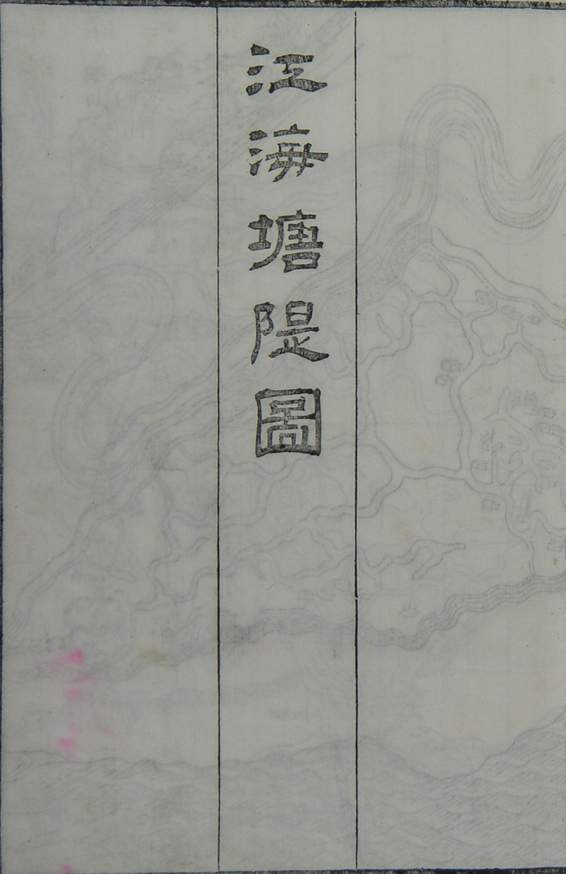 江海塘隄圖